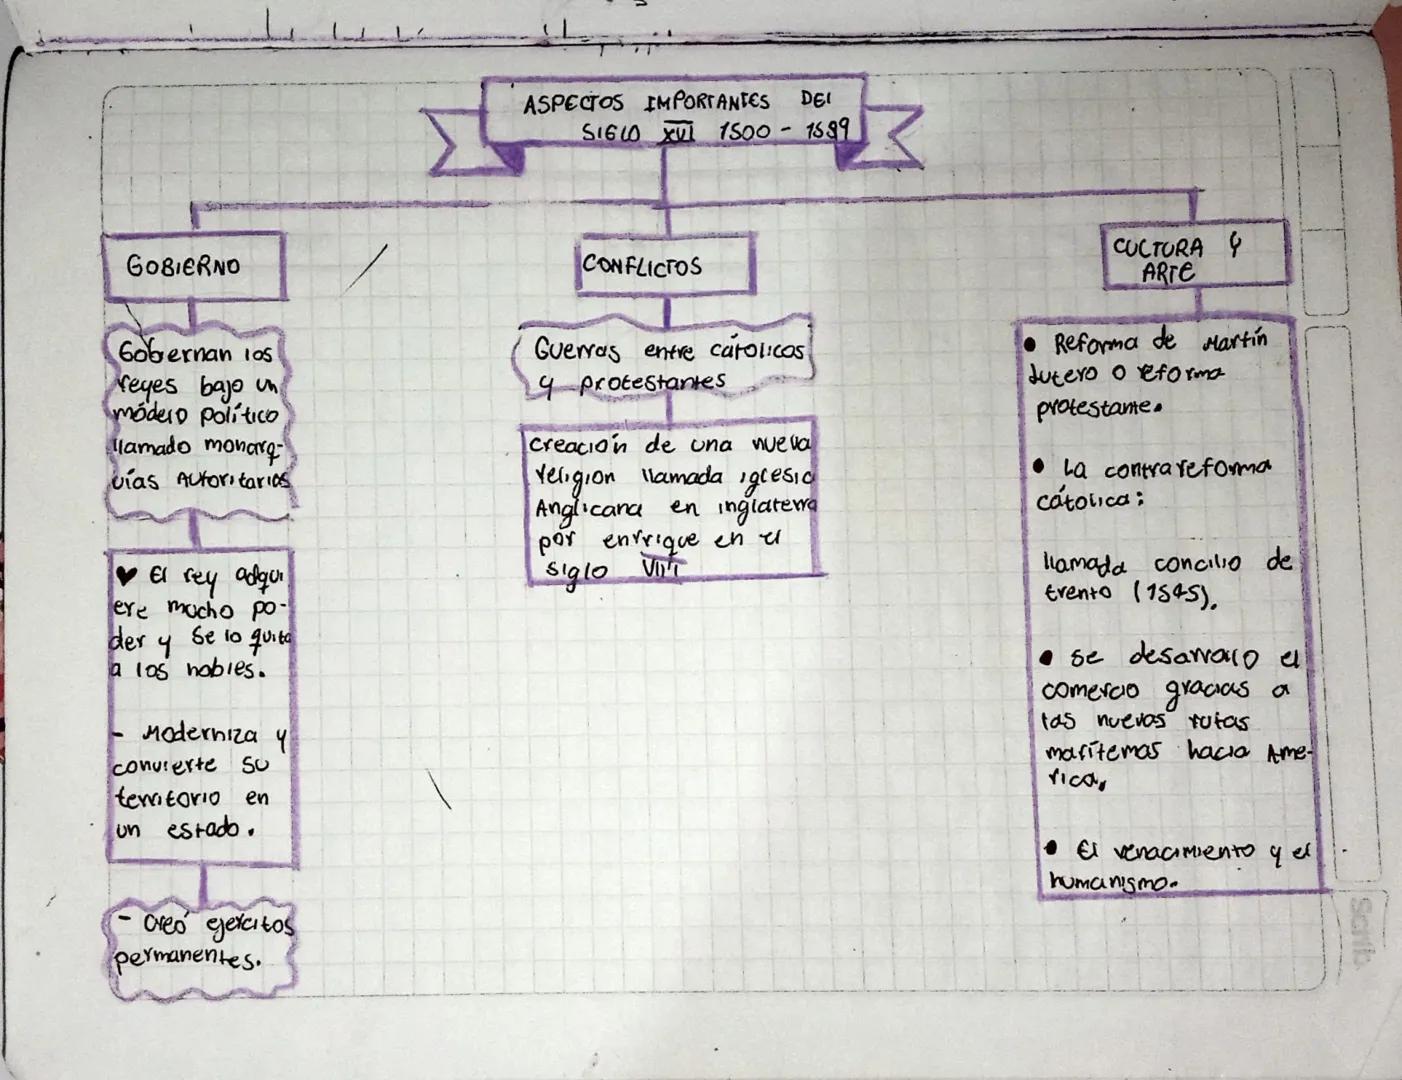 ASPECTOS IMPORTANTES DEL
SIGLO XVI 1500 - 1599
GOBIERNO
Gobernan los
reyes bajo un
módelo político
llamado monarq-
uías Autoritarias
♥ El rey adqui
ere mucho po-
der y se lo quita
a los nobles.
- Moderniza y
convierte su
territorio en
un estado.
- Creó ejercitos
permanentes.
CONFLICTOS
Guerras entre cátolicos
y protestantes
creación de una nueva
religion llamada iglesia
Anglicana en inglaterra
por enrrique en el
siglo VIII
CULTURA Y
ARTE
• Reforma de Martín
lutero o reforma
protestante.
• La contrareforma
cátolica:
llamada concilio de
trento (1545).
• se desarrolo el
comercio gracias a
las nuevas rutas
marítemas hacia Ame-
rica,
• El renacimiento y el
humanismo.
Scribe